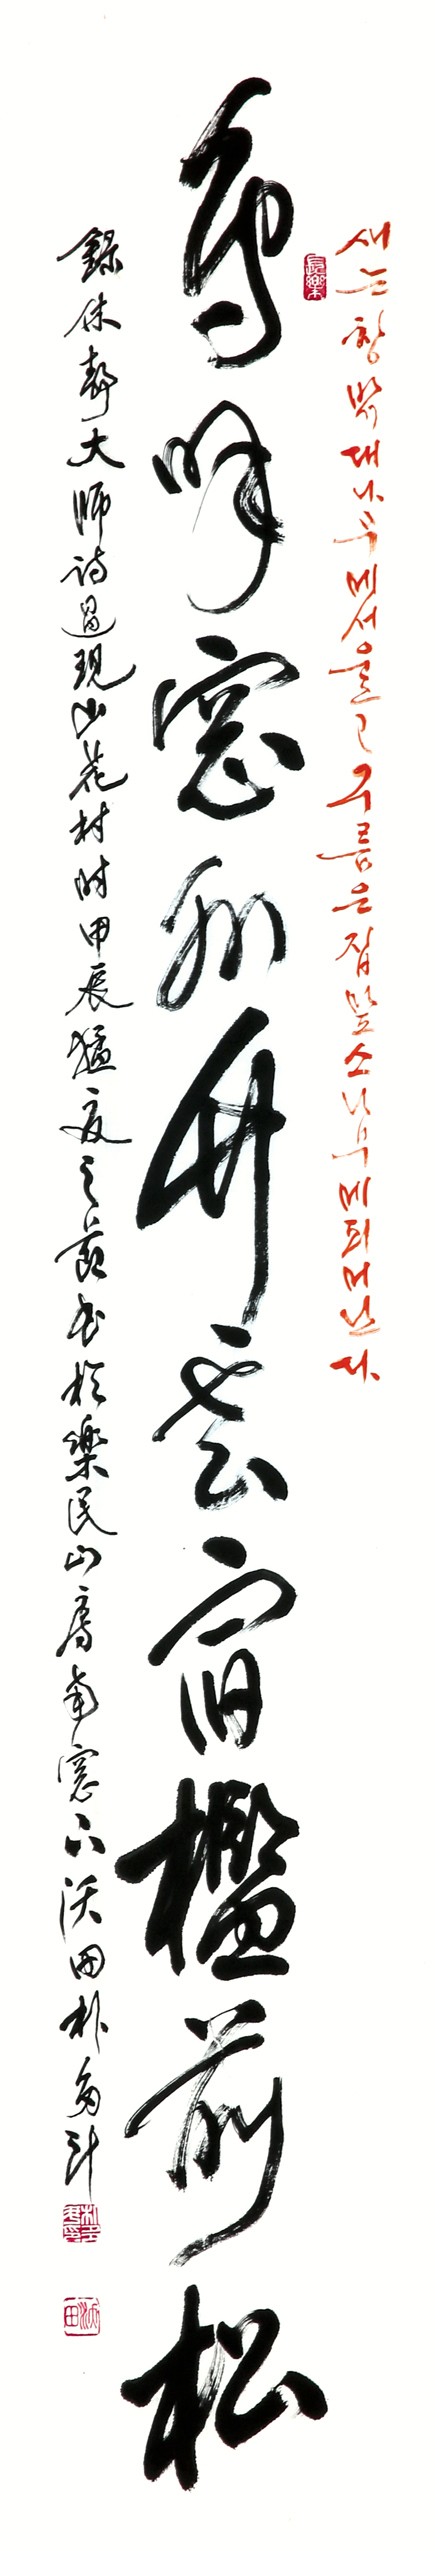 새는 창밖 대나무에서 울고 구름은 집앞 소나무에 피어난다
長樂
鳥呼窓外竹雲宿檻前松
錄休靜大師詩過現山花村時甲辰猛夏之節書於樂民山房南窓下沃田朴
沃田